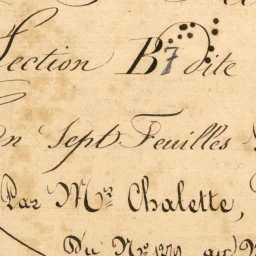 Section B7 dite
en Sept Feuilles
Par Mr. Chalette,
Du No. 1270 au N